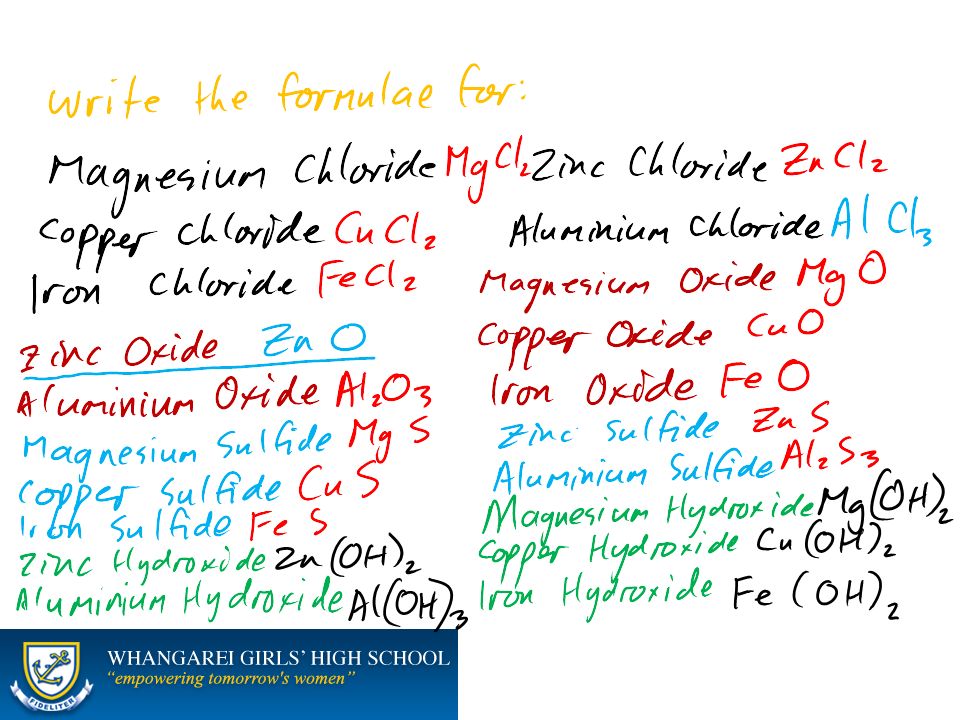 Write the formulae for:
Magnesium Chloride MgCl₂ Zinc Chloride ZnCl₂
Copper Chloride CuCl₂ Aluminium Chloride AlCl₃
Iron Chloride FeCl₂ Magnesium Oxide MgO
Zinc Oxide ZnO Copper Oxide CuO
Aluminium Oxide Al₂O₃ Iron Oxide FeO
Magnesium Sulfide MgS Zinc Sulfide ZnS
Copper Sulfide CuS Aluminium Sulfide Al₂S₃
Iron Sulfide FeS Magnesium Hydroxide Mg(OH)₂
Zinc Hydroxide Zn(OH)₂ Copper Hydroxide Cu(OH)₂
Aluminium Hydroxide Al(OH)₃ Iron Hydroxide Fe(OH)₂
WHANGAREI GIRLS' HIGH SCHOOL
"empowering tomorrow's women"
FIDELITER